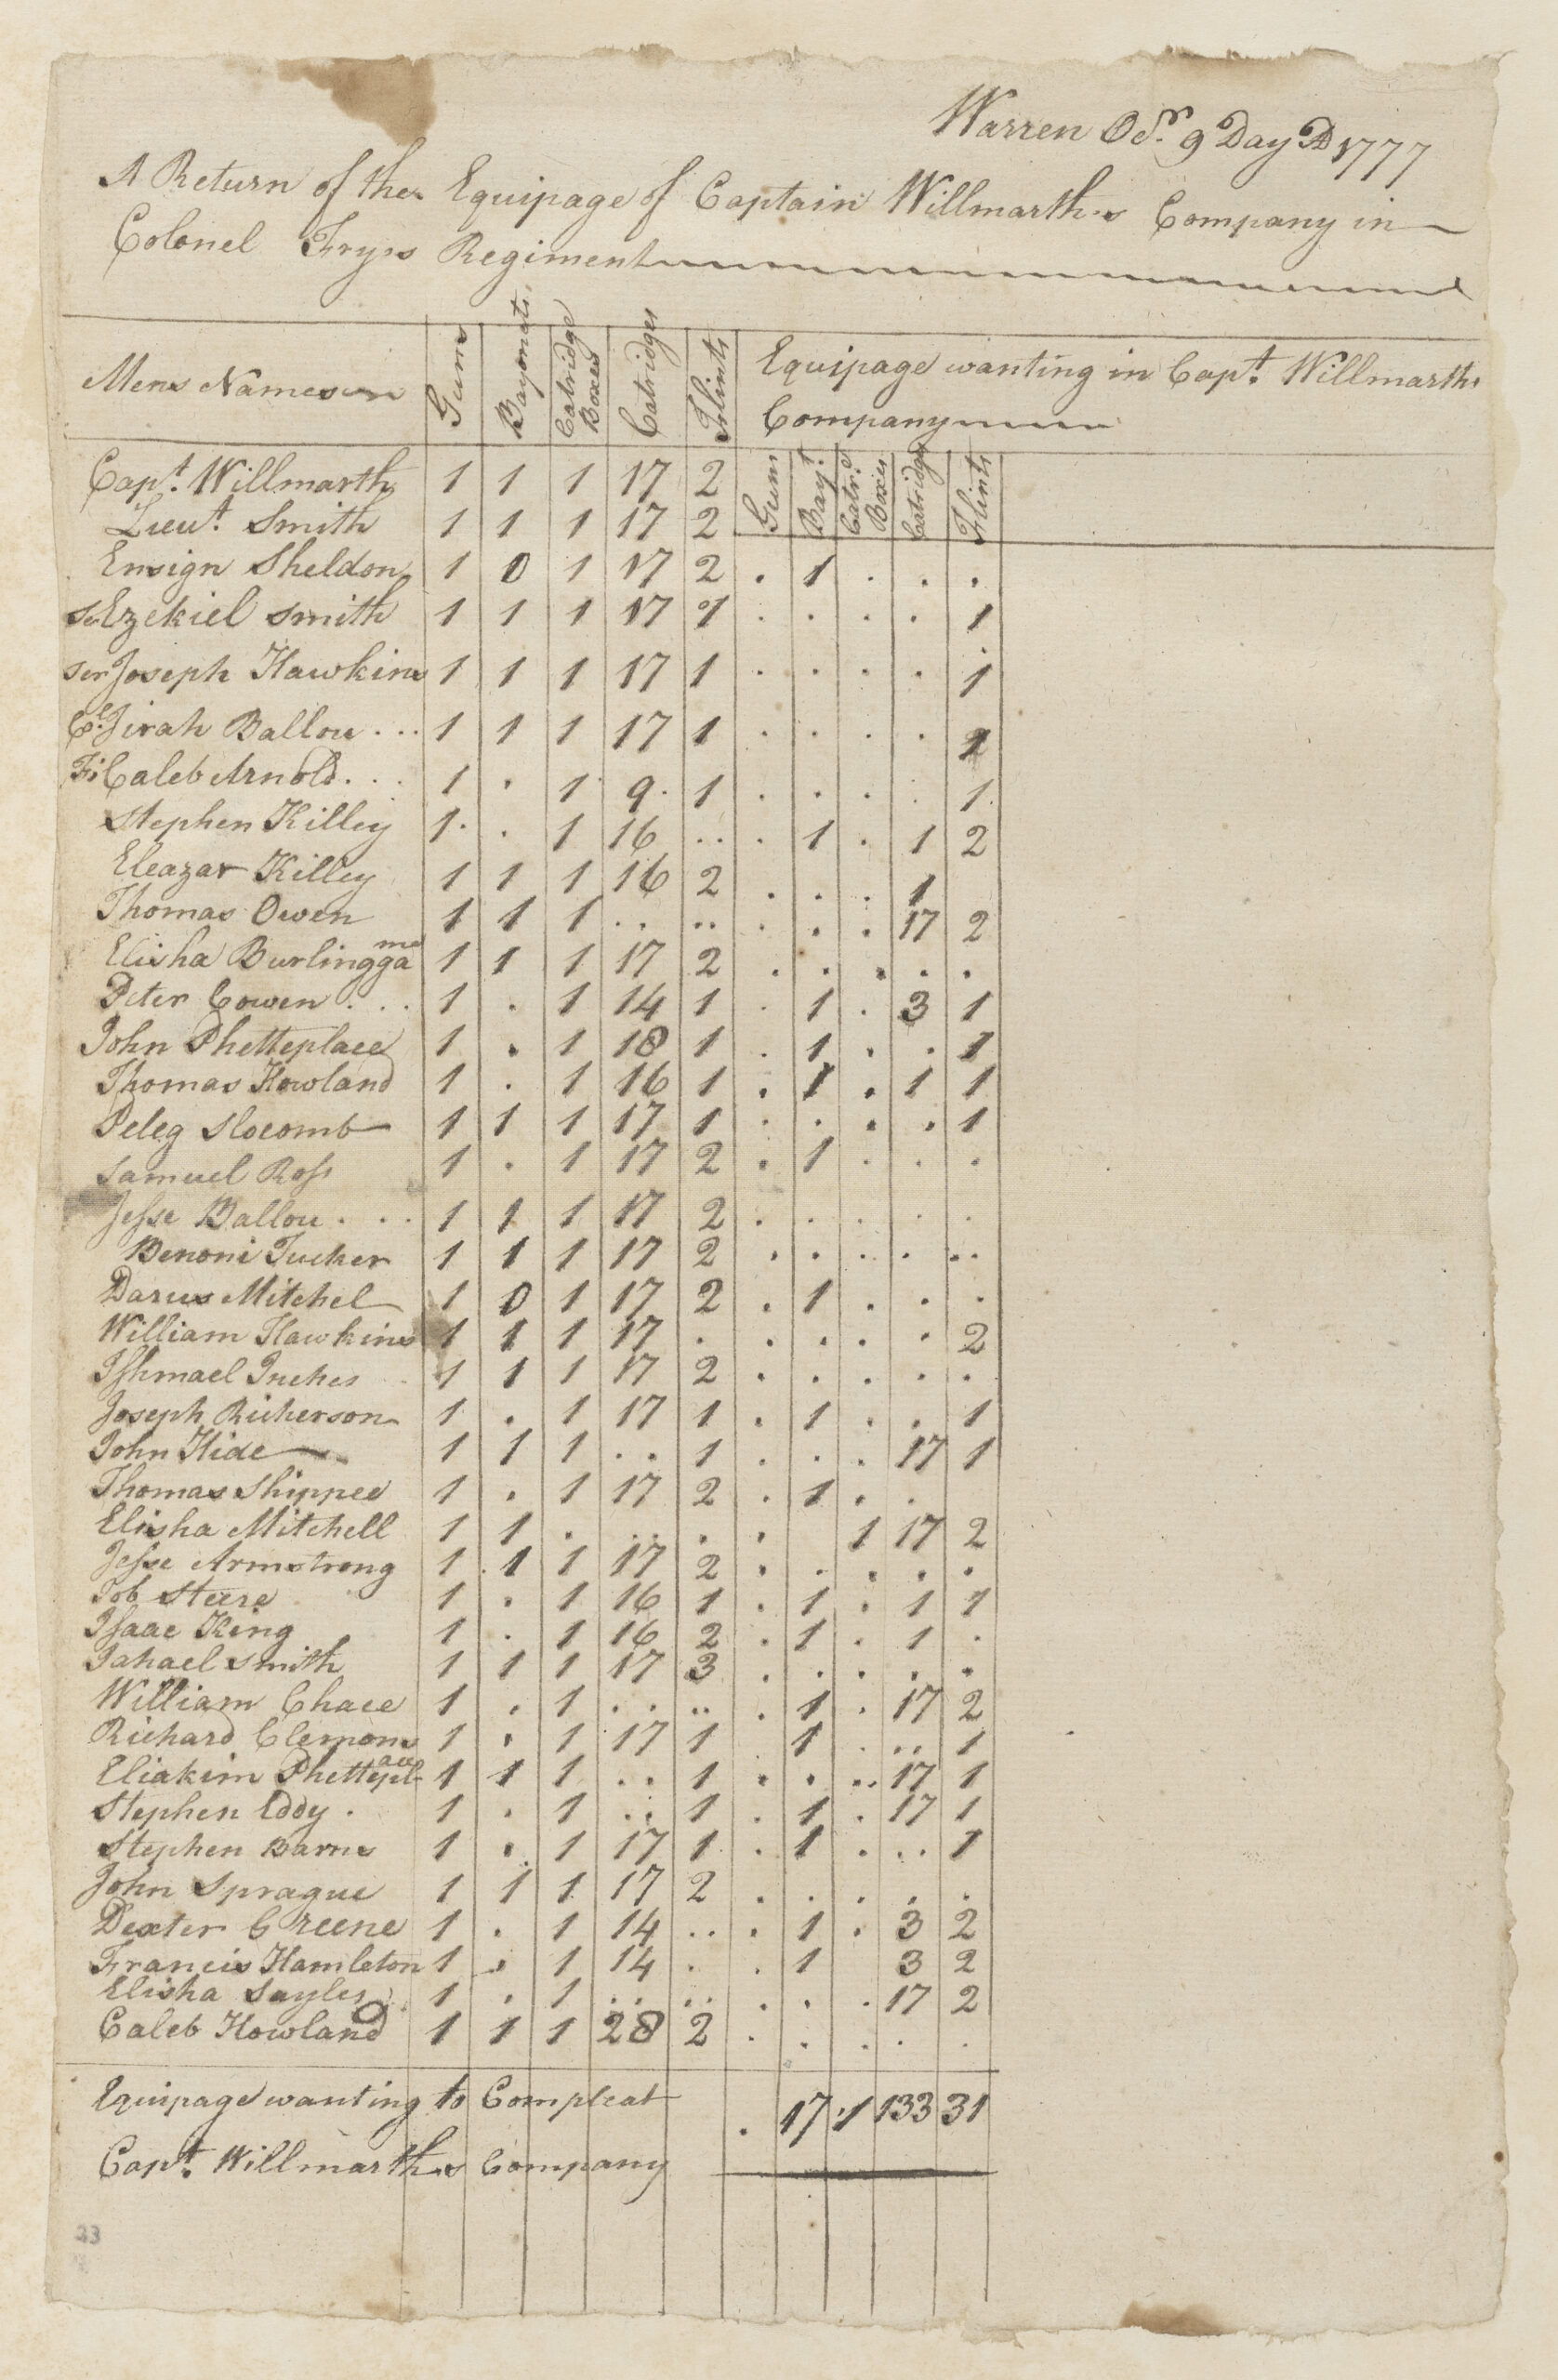 Warren Octr. 9 Day AD 1777
A Return of the Equipage of Captain Willmarths Company in
Colonel Frys Regiment
Mens Names Guns Bayonets Catridge Boxes Catridges Flints Equipage wanting in Capt. Willmarths
Company
Guns Bayt. Catrid Boxes Catridges Flints
Capt. Willmarth 1 1 1 17 2
Lieut. Smith 1 1 1 17 2
Ensign Sheldon 1 0 1 17 2 . 1 . . .
Ser Ezekiel Smith 1 1 1 17 1 . . . . 1
Ser Joseph Hawkins 1 1 1 17 1 . . . . 1
Cl. Jirah Ballou ... 1 1 1 17 1 . . . . 1
Fi Caleb Arnold . . . 1 . 1 9 . 1 . . . . 1
Stephen Killey 1 . . 1 16 .. . 1 . 1 2
Eleazar Killey 1 1 1 16 2 . . . 1
Thomas Owen 1 1 1 .. .. . . . 17 2
Elisha Burlinggame 1 1 1 17 2 . . . . .
Peter Cowen . . . 1 . 1 14 1 . 1 . 3 1
John Phetteplace 1 . 1 18 1 . 1 . . 1
Thomas Howland 1 . 1 16 1 . 1 . 1 1
Peleg Slocomb 1 1 1 17 1 . . . . 1
Samuel Ross 1 . 1 17 2 . 1 . . .
Jesse Ballou . . . 1 1 1 17 2 . . . . .
Benoni Tucker 1 1 1 17 2 . . . . ..
Darius Mitchel 1 0 1 17 2 . 1 . . .
William Hawkins 1 1 1 17 . . . . . 2
Ishmael Inches 1 1 1 17 2 . . . . .
Joseph Richerson 1 . 1 17 1 . 1 . . 1
John Hide 1 1 1 . . 1 . . . 17 1
Thomas Shippee 1 . 1 17 2 . 1 . .
Elisha Mitchell 1 1 . .. . . 1 17 2
Jesse Armstrong 1 1 1 17 2 . . . . .
Job Steere 1 . 1 16 1 . 1 . 1 1
Isaac King 1 . 1 16 2 . 1 . 1 .
Jahael Smith 1 1 1 17 3 . . . . .
William Chace 1 . 1 . . .. . 1 . 17 2
Richard Clemons 1 . 1 17 1 1 . .. 1
Eliakim Phetteplace 1 1 1 . . 1 . . .. 17 1
Stephen Eddy . 1 . 1 . . 1 . 1 . 17 1
Stephen Barns 1 . 1 17 1 . 1 . .. 1
John Sprague 1 1 1 17 2 . . . . .
Dexter Greene 1 . 1 14 .. . 1 . 3 2
Francis Hamleton 1 . 1 14 . . 1 3 2
Elisha Sayles 1 . 1 .. .. . . . 17 2
Caleb Howland 1 1 1 28 2 . . . . .
Equipage wanting to Compleat . 17 1 133 31
Capt. Willmarths Company
23